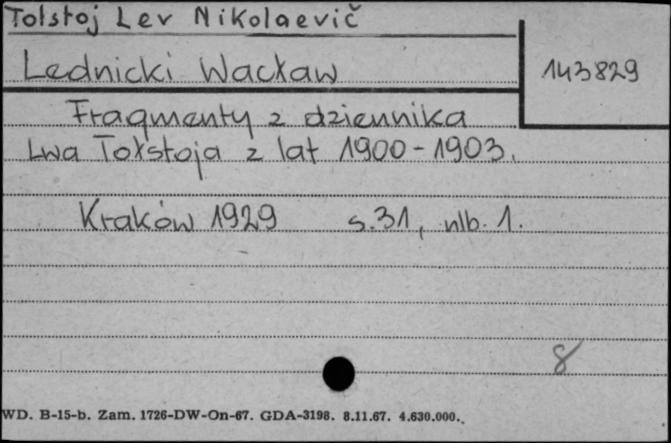 Tolstoj Lev Nikolaevič
Lednicki Wacław
143829
Fragmenty z dziennika
Lwa Tołstoja z lat 1900-1903.
Kraków 1929 s.31, nlb. 1.
8
WD. B-15-b. Zam. 1726-DW-On-67. GDA-3198. 8.11.67. 4.630.000.